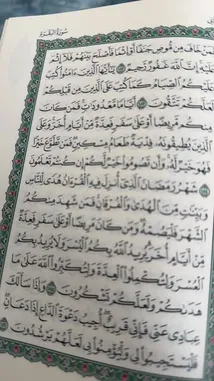 سُورَةُ البَقَرَةِ
فَمَنْ خَافَ مِن مُّوصٍ جَنَفًا أَوْ إِثْمًا فَأَصْلَحَ بَيْنَهُمْ فَلَا إِثْمَ
عَلَيْهِ إِنَّ اللَّهَ غَفُورٌ رَّحِيمٌ ١٨٢ يَا أَيُّهَا الَّذِينَ آمَنُوا كُتِبَ
عَلَيْكُمُ الصِّيَامُ كَمَا كُتِبَ عَلَى الَّذِينَ مِن قَبْلِكُمْ
لَعَلَّكُمْ تَتَّقُونَ ١٨٣ أَيَّامًا مَّعْدُودَاتٍ فَمَن كَانَ
مِنكُم مَّرِيضًا أَوْ عَلَى سَفَرٍ فَعِدَّةٌ مِّنْ أَيَّامٍ أُخَرَ وَعَلَى
الَّذِينَ يُطِيقُونَهُ فِدْيَةٌ طَعَامُ مِسْكِينٍ فَمَن تَطَوَّعَ خَيْرًا
فَهُوَ خَيْرٌ لَّهُ وَأَن تَصُومُوا خَيْرٌ لَّكُمْ إِن كُنتُمْ تَعْلَمُونَ
١٨٤ شَهْرُ رَمَضَانَ الَّذِي أُنزِلَ فِيهِ الْقُرْآنُ هُدًى لِّلنَّاسِ
وَبَيِّنَاتٍ مِّنَ الْهُدَى وَالْفُرْقَانِ فَمَن شَهِدَ مِنكُمُ
الشَّهْرَ فَلْيَصُمْهُ وَمَن كَانَ مَرِيضًا أَوْ عَلَى سَفَرٍ فَعِدَّةٌ
مِّنْ أَيَّامٍ أُخَرَ يُرِيدُ اللَّهُ بِكُمُ الْيُسْرَ وَلَا يُرِيدُ بِكُمُ
الْعُسْرَ وَلِتُكْمِلُوا الْعِدَّةَ وَلِتُكَبِّرُوا اللَّهَ عَلَى مَا
هَدَاكُمْ وَلَعَلَّكُمْ تَشْكُرُونَ ١٨٥ وَإِذَا سَأَلَكَ
عِبَادِي عَنِّي فَإِنِّي قَرِيبٌ أُجِيبُ دَعْوَةَ الدَّاعِ إِذَا دَعَانِ
فَلْيَسْتَجِيبُوا لِي وَلْيُؤْمِنُوا بِي لَعَلَّهُمْ يَرْشُدُونَ ١٨٦